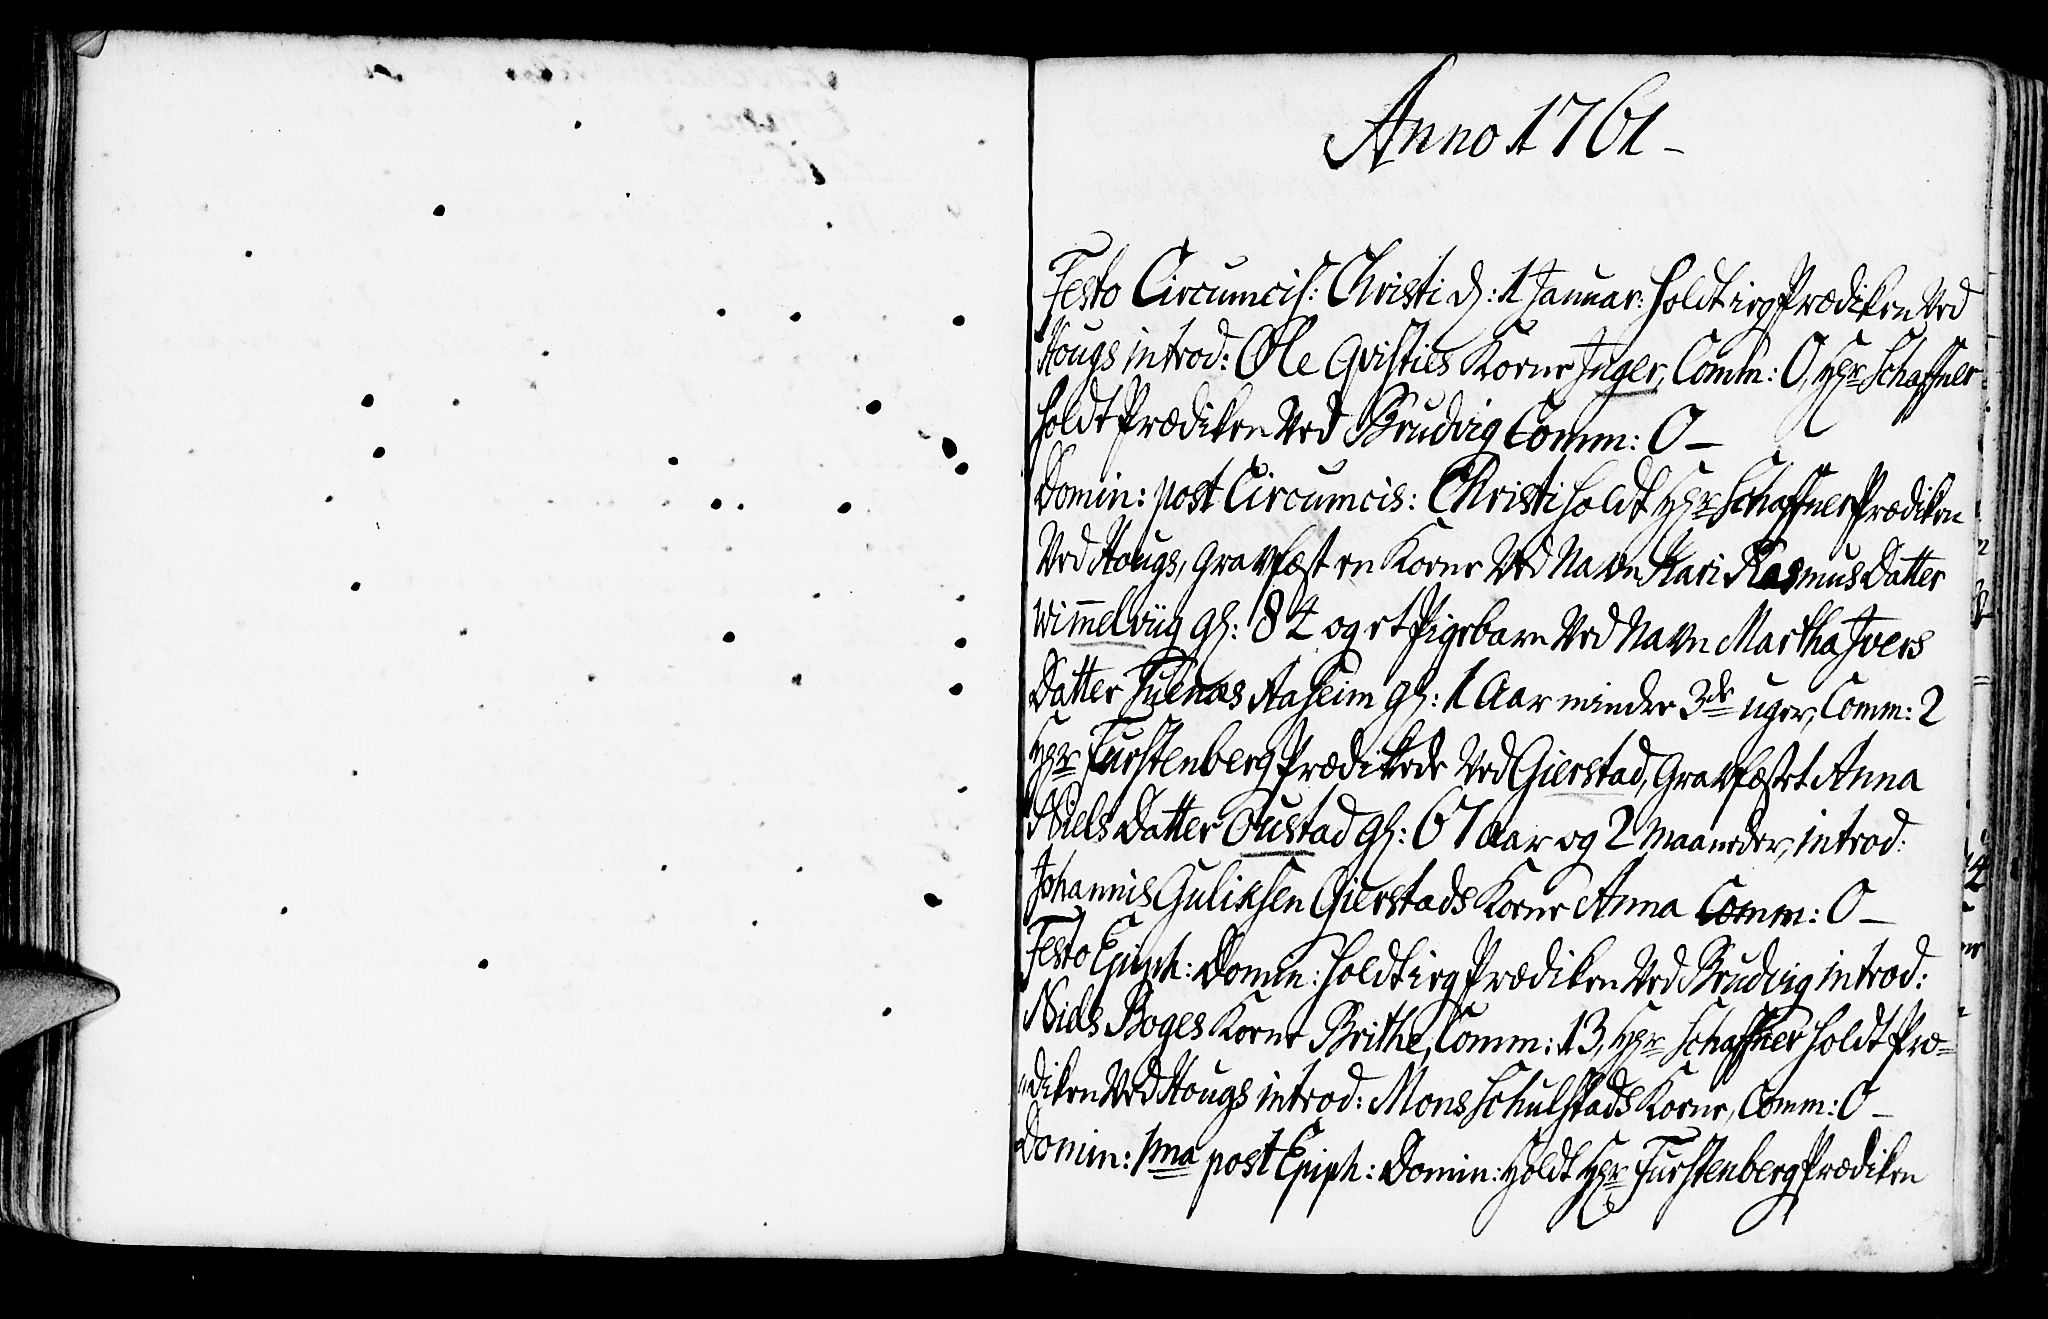 Anno 1761 –
Festo Circumcis: Christi d: 1 Januar: holdt ieg Prædiken Ved
Hougs introd: Ole Qvisties Kone Inger, Comm: 0, Hr Schaffner
holdt Prædiken Ved Brudvig Comm: 0 –
Domin: post Circumcis: Christi holdt Hr Schaffner Prædiken
Ved Hougs, Gravfæst en Kone Ved Navn Kari Rasmus Datter
Wim̄elviig gl: 84 og et Pigebarn Ved Navn Martha Ivers
Datter Aaheim gl: 1 Aar mindre 3de uger, Comm: 2
Hr Furstenberg Prædikede Ved Gierstad, Gravfæstet Anna
Niels Datter Oustad gl: 67 Aar og 2 Maaneder, introd:
Johannis Guliksen Gierstads Kone Anna Comm: 0 –
Festo Epiph: Domin: holdt ieg Prædiken Ved Brudvig introd:
Niels Boges Kone Brithe, Comm: 13, Hr Schaffner holdt Præ=
=diken Ved Hougs introd: Mons Schulstads Kone, Comm: 0 –
Domin: 1ma post Epiph: Domin: Holdt Hr Furstenberg Prædiken